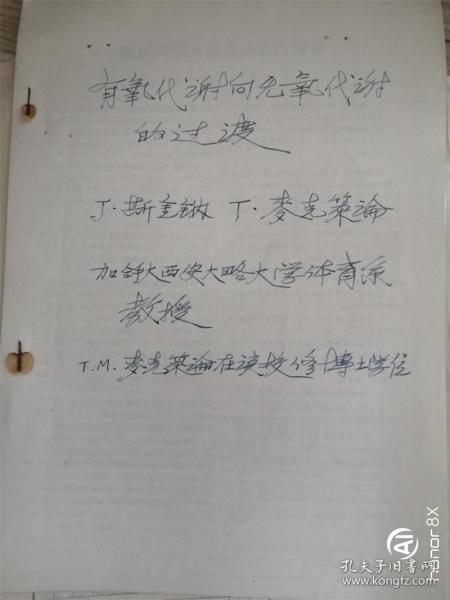 有氧代谢向无氧代谢
的过渡
J·斯金纳 T·麦克莱论
加拿大西安大略大学体育系
教授
T.M.麦克莱论在该校修博士学位
honor 8X
孔夫子旧书网
www.kongfz.com